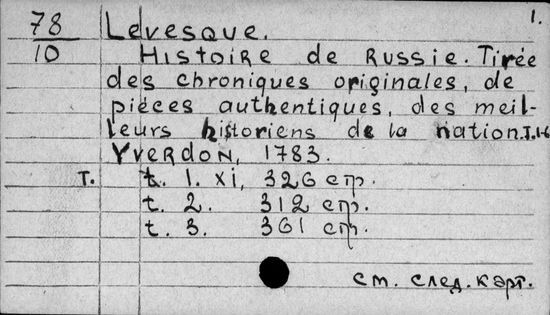 1.
78 Levesque.
10 Histoire de Russie. Tirée
des chroniques originales, de
pièces authentiques, des meil-
leurs historiens de la nation. T. 1-6
Yverdon, 1783.
T. t. 1. XI, 326 стр.
t. 2. 312 стр.
t. 3. 361 стр.
см. след. карт.